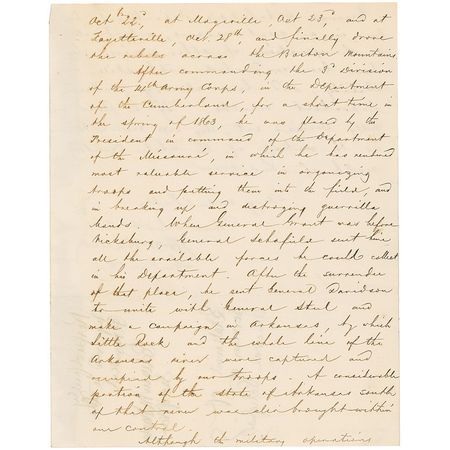 Oct 22d, at Maysville, Oct 23d, and at
Fayetteville, Oct. 28th, and finally drove
the rebels across the Boston Mountains
After commanding the 3d Division
of the 14th Army Corps, in the Department
of the Cumberland, for a short time in
the spring of 1863, he was placed by the
President in command of the Department
of the Missouri, in which he has rendered
most valuable service in organizing
troops and putting them into the field, and
in breaking up and destroying guerrilla
bands. When General Grant was before
Vicksburg, General Schofield sent him
all the available forces he could collect
in his Department. After the surrender
of that place, he sent General Davidson
to unite with General Steel and
make a campaign in Arkansas, by which
Little Rock and the whole line of the
Arkansas river were captured and
occupied by our troops. A considerable
portion of the state of Arkansas south
of that river was also brought within
our control.
Although the military operations